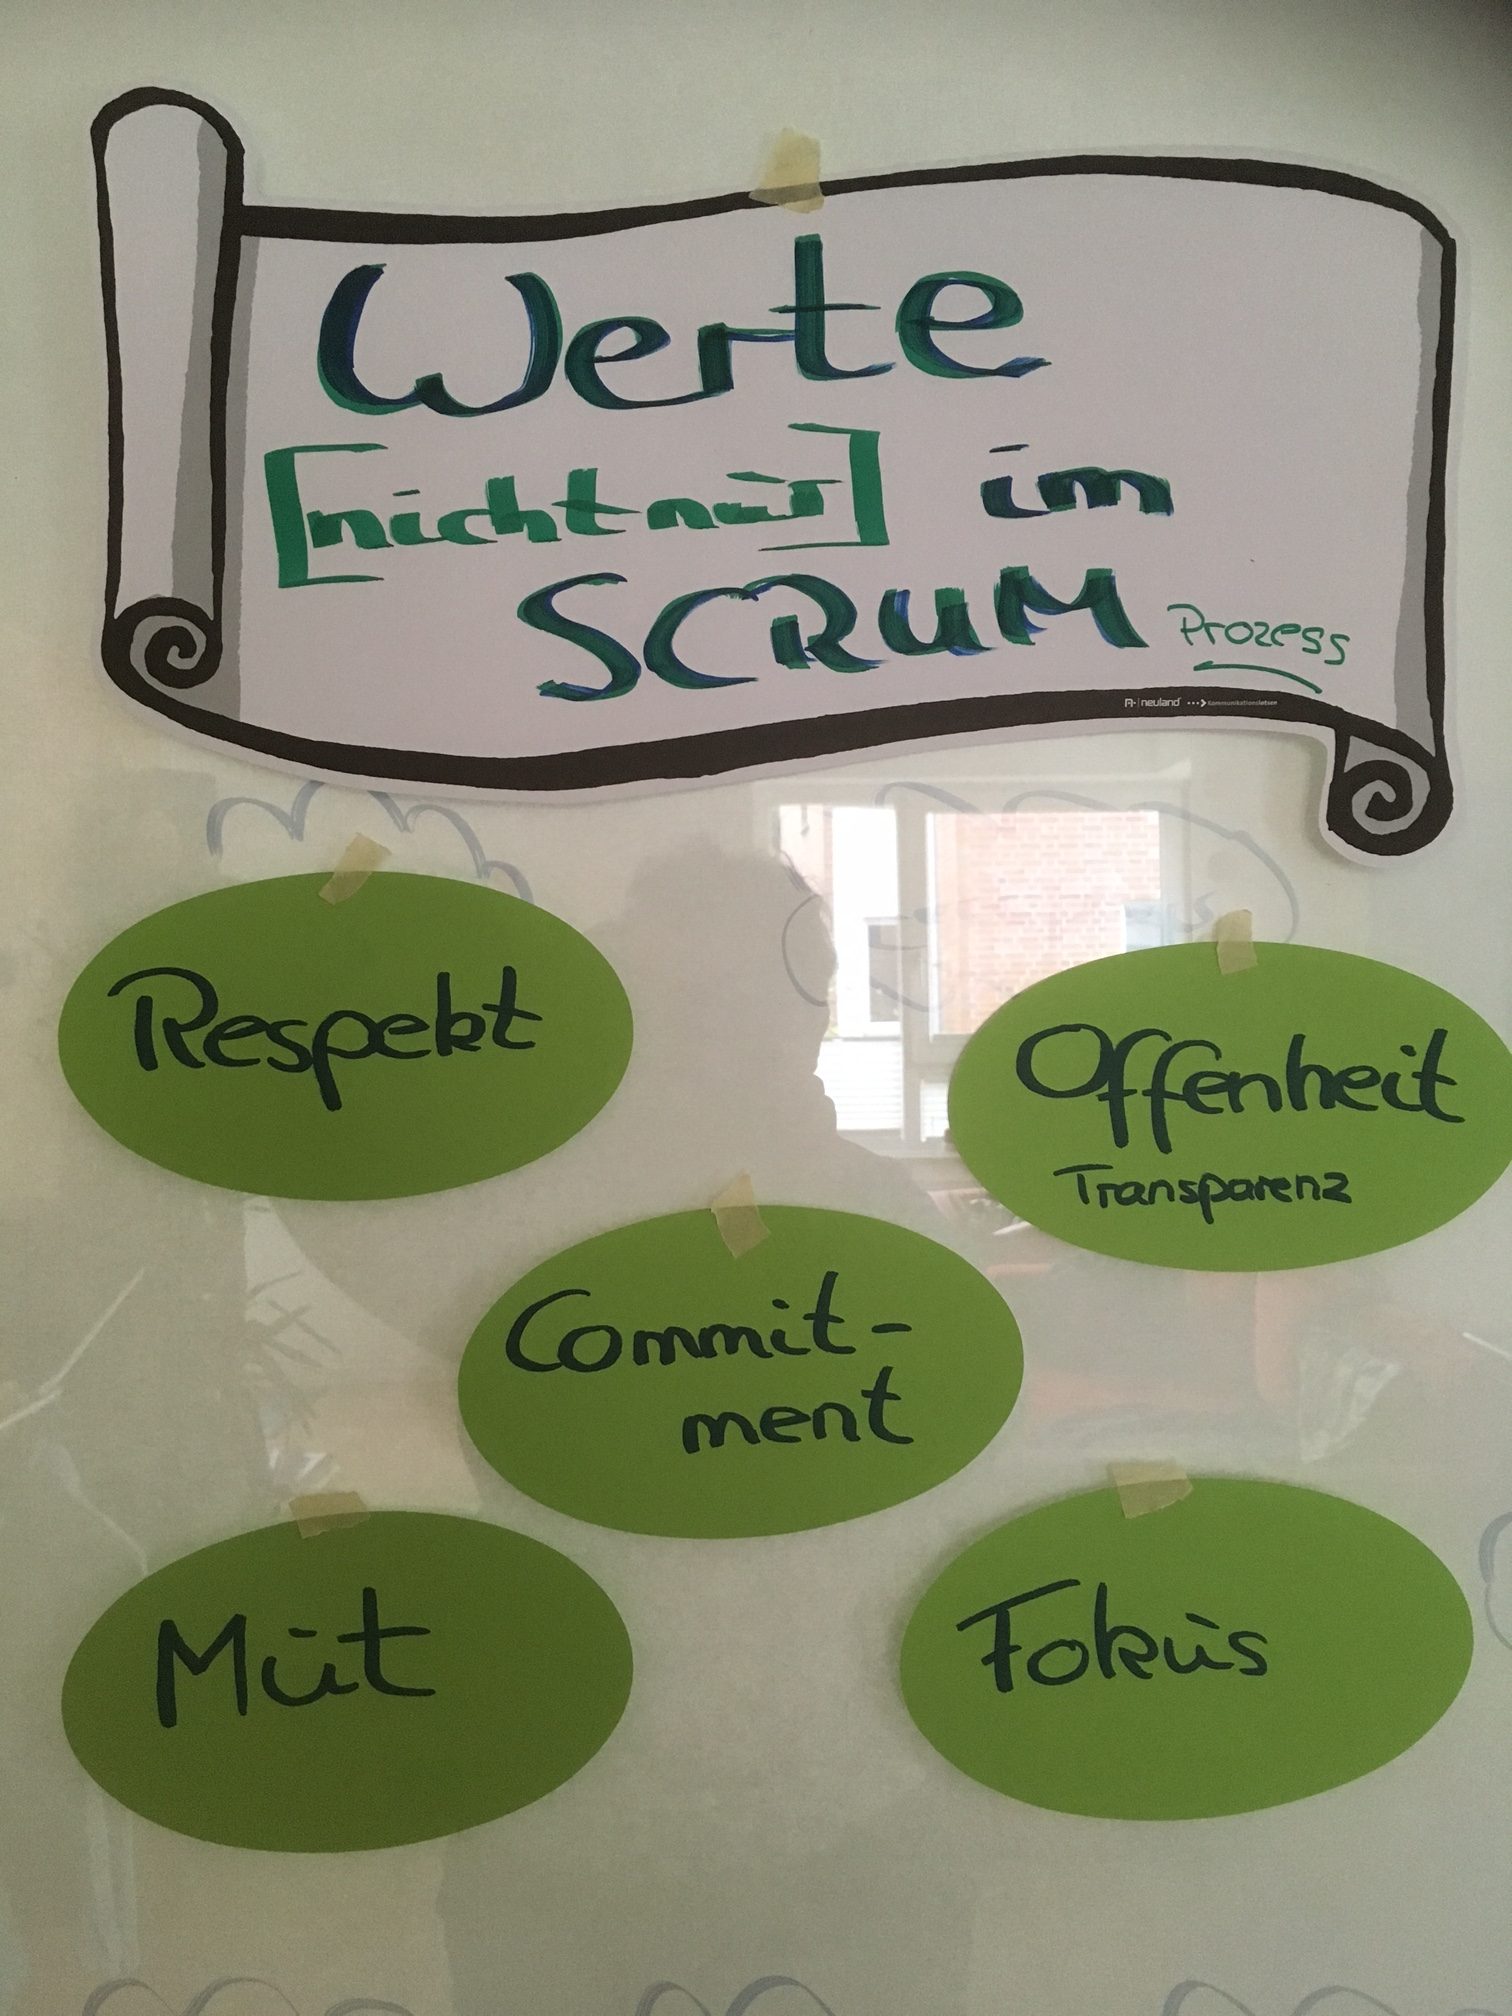 Werte
[nicht nur] im
SCRUM Prozess
neuland Kommunikationslotsen
Respekt
Offenheit
Transparenz
Commit-
ment
Mut
Fokus